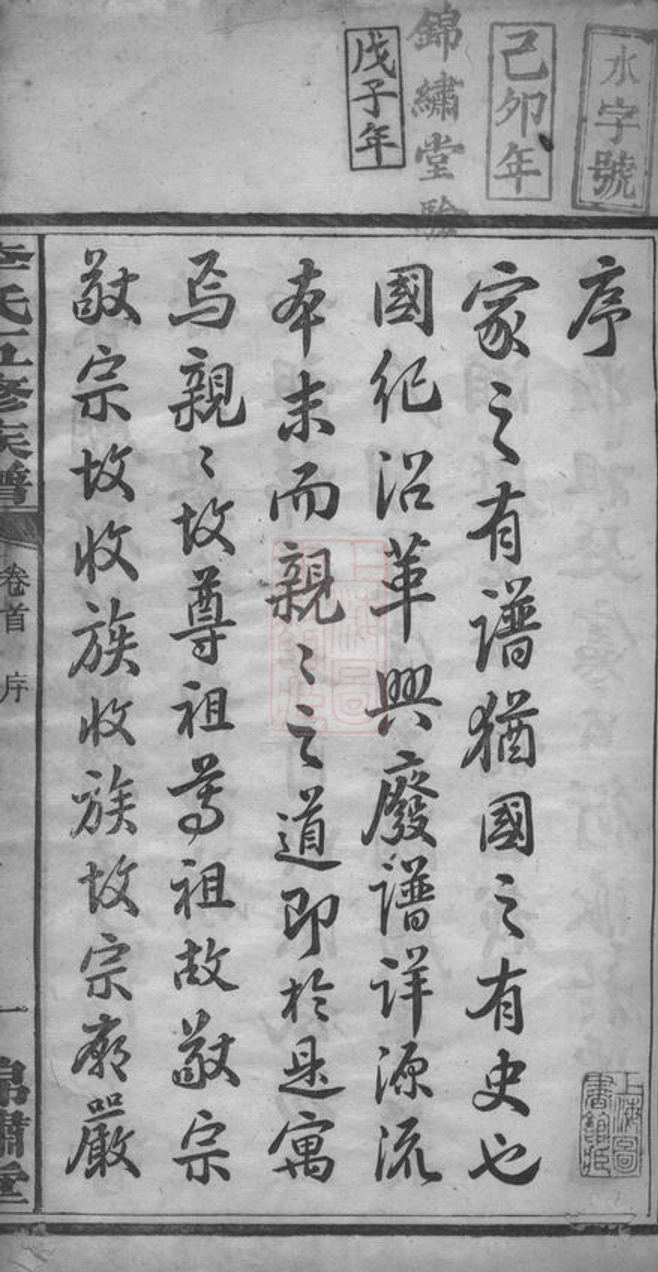 水字號
己卯年
錦繡堂驗
戊子年
序
家之有譜猶國之有史也
國紀沿革興廢譜詳源流
本末而親〻之道即於是寓
焉親〻故尊祖尊祖故敬宗
敬宗故收族收族故宗廟嚴
氏五修族譜
卷首
序
一
錦繡堂
上海圖書館藏